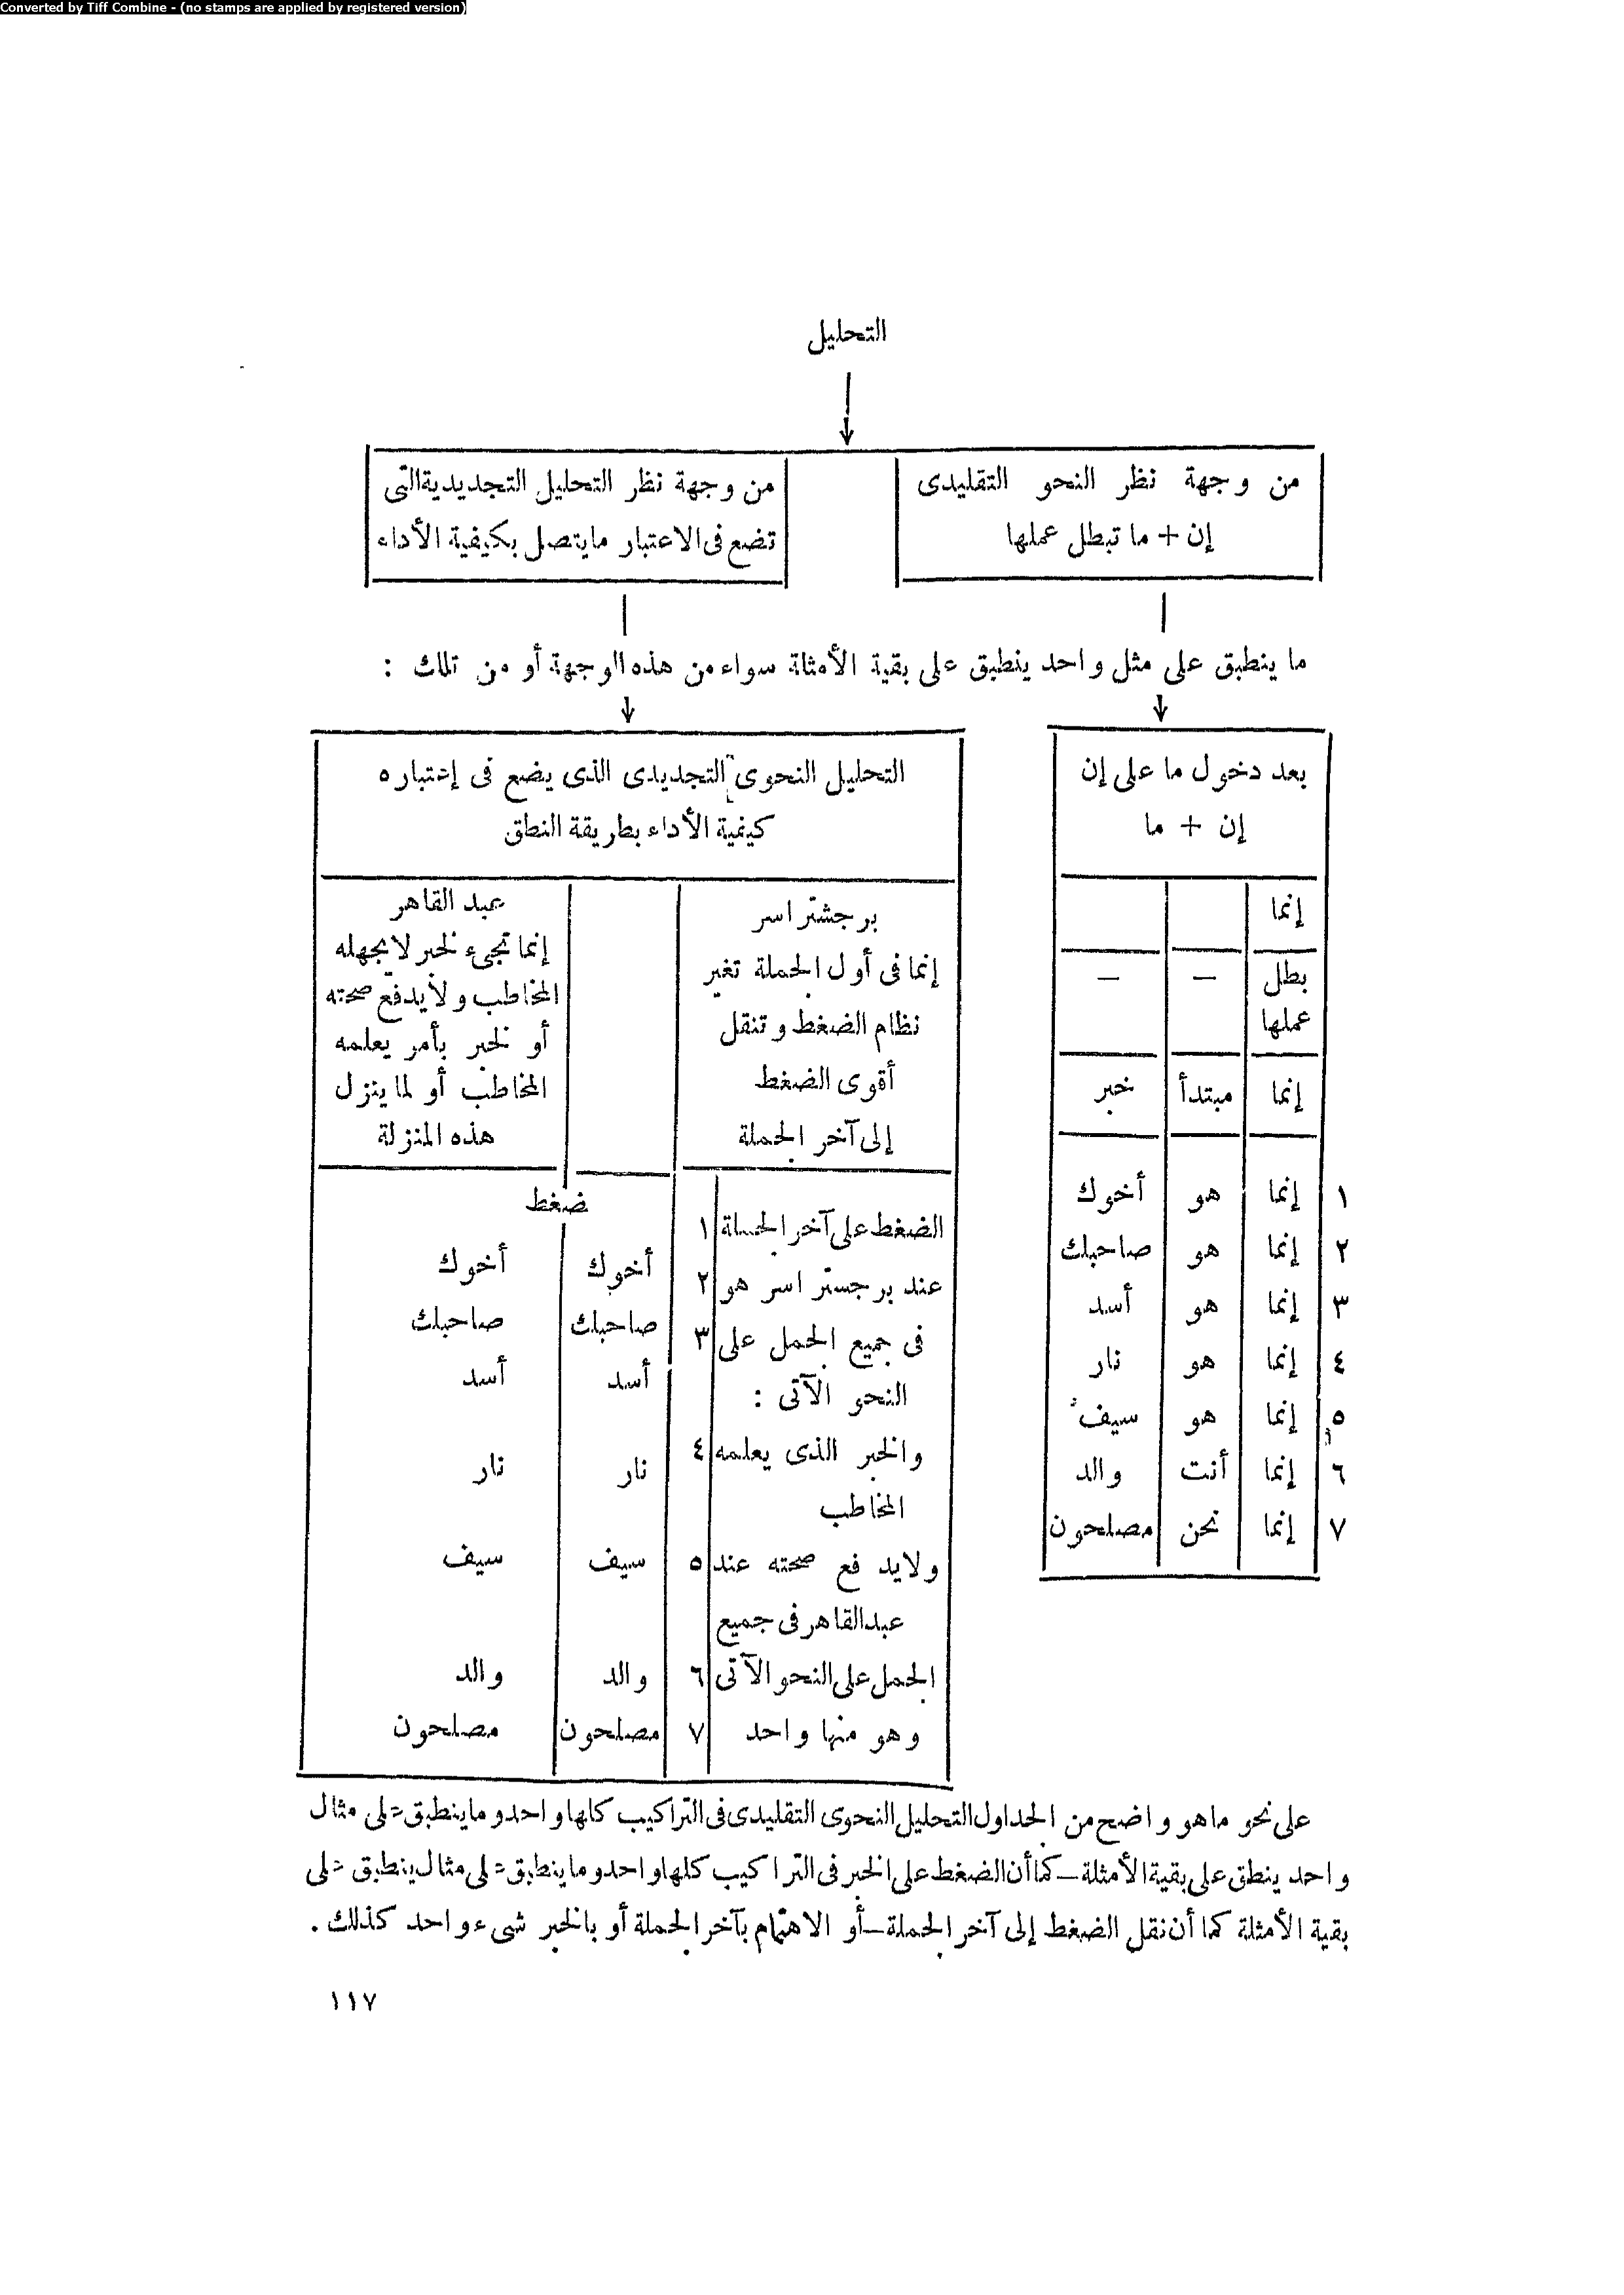 Converted by Tiff Combine - (no stamps are applied by registered version)
التحليل
↓
من وجهة نظر النحو التقليدى
إن + ما تبطل عملها
من وجهة نظر التحليل التجديدية التى
تضع فى الاعتبار مايتصل بكيفية الأداء
ما ينطبق على مثل واحد ينطبق على بقية الأمثلة سواء من هذه الوجهة أو من تلك :
بعد دخول ما على إن
إن + ما
إنما
بطل — —
عملها
إنما مبتدأ خبر
١ إنما هو أخوك
٢ إنما هو صاحبك
٣ إنما هو أسد
٤ إنما هو نار
٥ إنما هو سيف
٦ إنما أنت والد
٧ إنما نحن مصلحون
التحليل النحوى التجديدى الذى يضع فى إعتباره
كيفية الأداء بطريقة النطق
برجشتراسر
إنما فى أول الجملة تغير
نظام الضغط وتنقل
أقوى الضغط
إلى آخر الجملة
عبد القاهر
إنما تجىء لخبر لا يجهله
المخاطب ولا يدفع صحته
أو لخبر بأمر يعلمه
المخاطب أو لما ينزل
هذه المنزلة
ضغط
الضغط على آخر الجملة ١ أخوك أخوك
عند برجستراسر هو ٢ صاحبك صاحبك
فى جميع الجمل على ٣ أسد أسد
النحو الآتى :
والخبر الذى يعلمه ٤ نار نار
المخاطب
ولايدفع صحته عند ٥ سيف سيف
عبدالقاهر فى جميع
الجمل على النحو الآتى ٦ والد والد
وهو منها واحد ٧ مصلحون مصلحون
على نحو ماهو واضح من الجداول التحليل النحوى التقليدى فى التراكيب كلها واحد وماينطبق على مثال
واحد ينطق على بقية الأمثلة – كما أن الضغط على الخبر فى التراكيب كلها واحد وماينطبق على مثال ينطبق على
بقية الأمثلة كما أن نقل الضغط إلى آخر الجملة – أو الاهتمام بآخر الجملة أو بالخبر شىء واحد كذلك .
١١٧